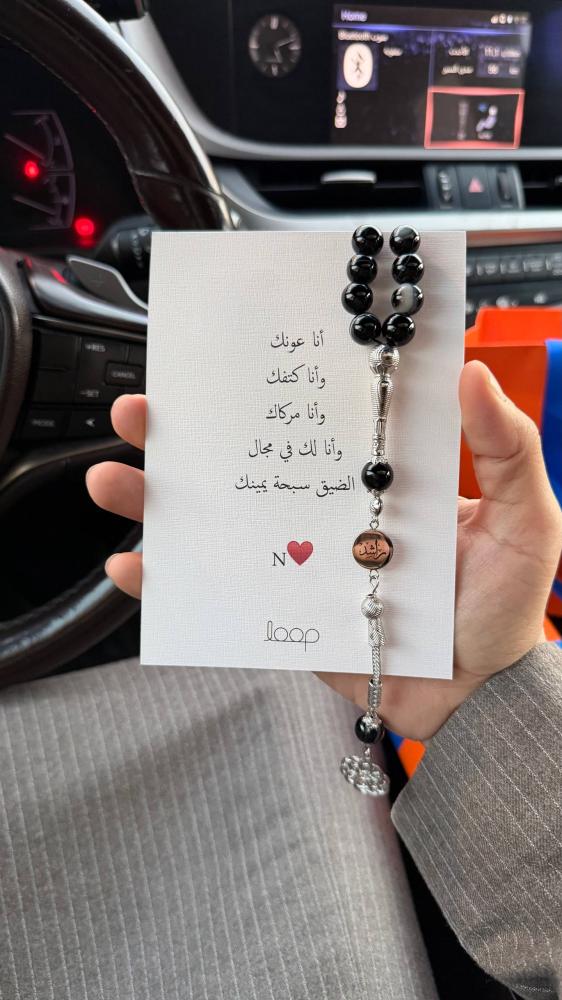 Home
أنا عونك
وأنا كتفك
وأنا مركاك
وأنا لك في مجال
الضيق سبحة يمينك
N❤️
loop
راشد
+RES
CANCEL
-SET
MODE